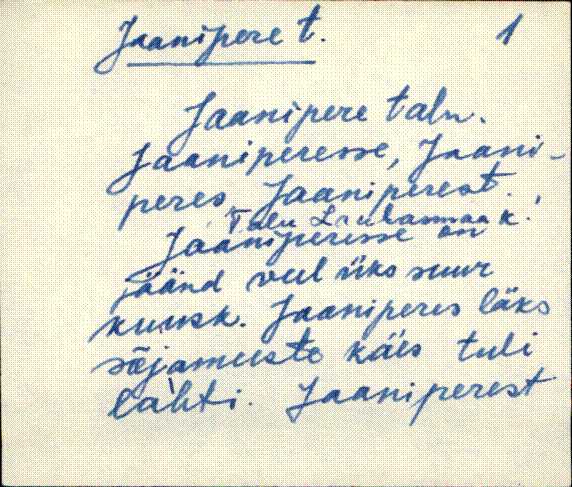 Jaanipere t. 1
Jaanipere talu.
Jaaniperesse, Jaani-
peres, Jaaniperest.
Talu Laulasmaa k.
Jaaniperesse on
jäänd veel üks suur
kuusk. Jaaniperes läks
sõjameeste käes tuli
lahti. Jaaniperest